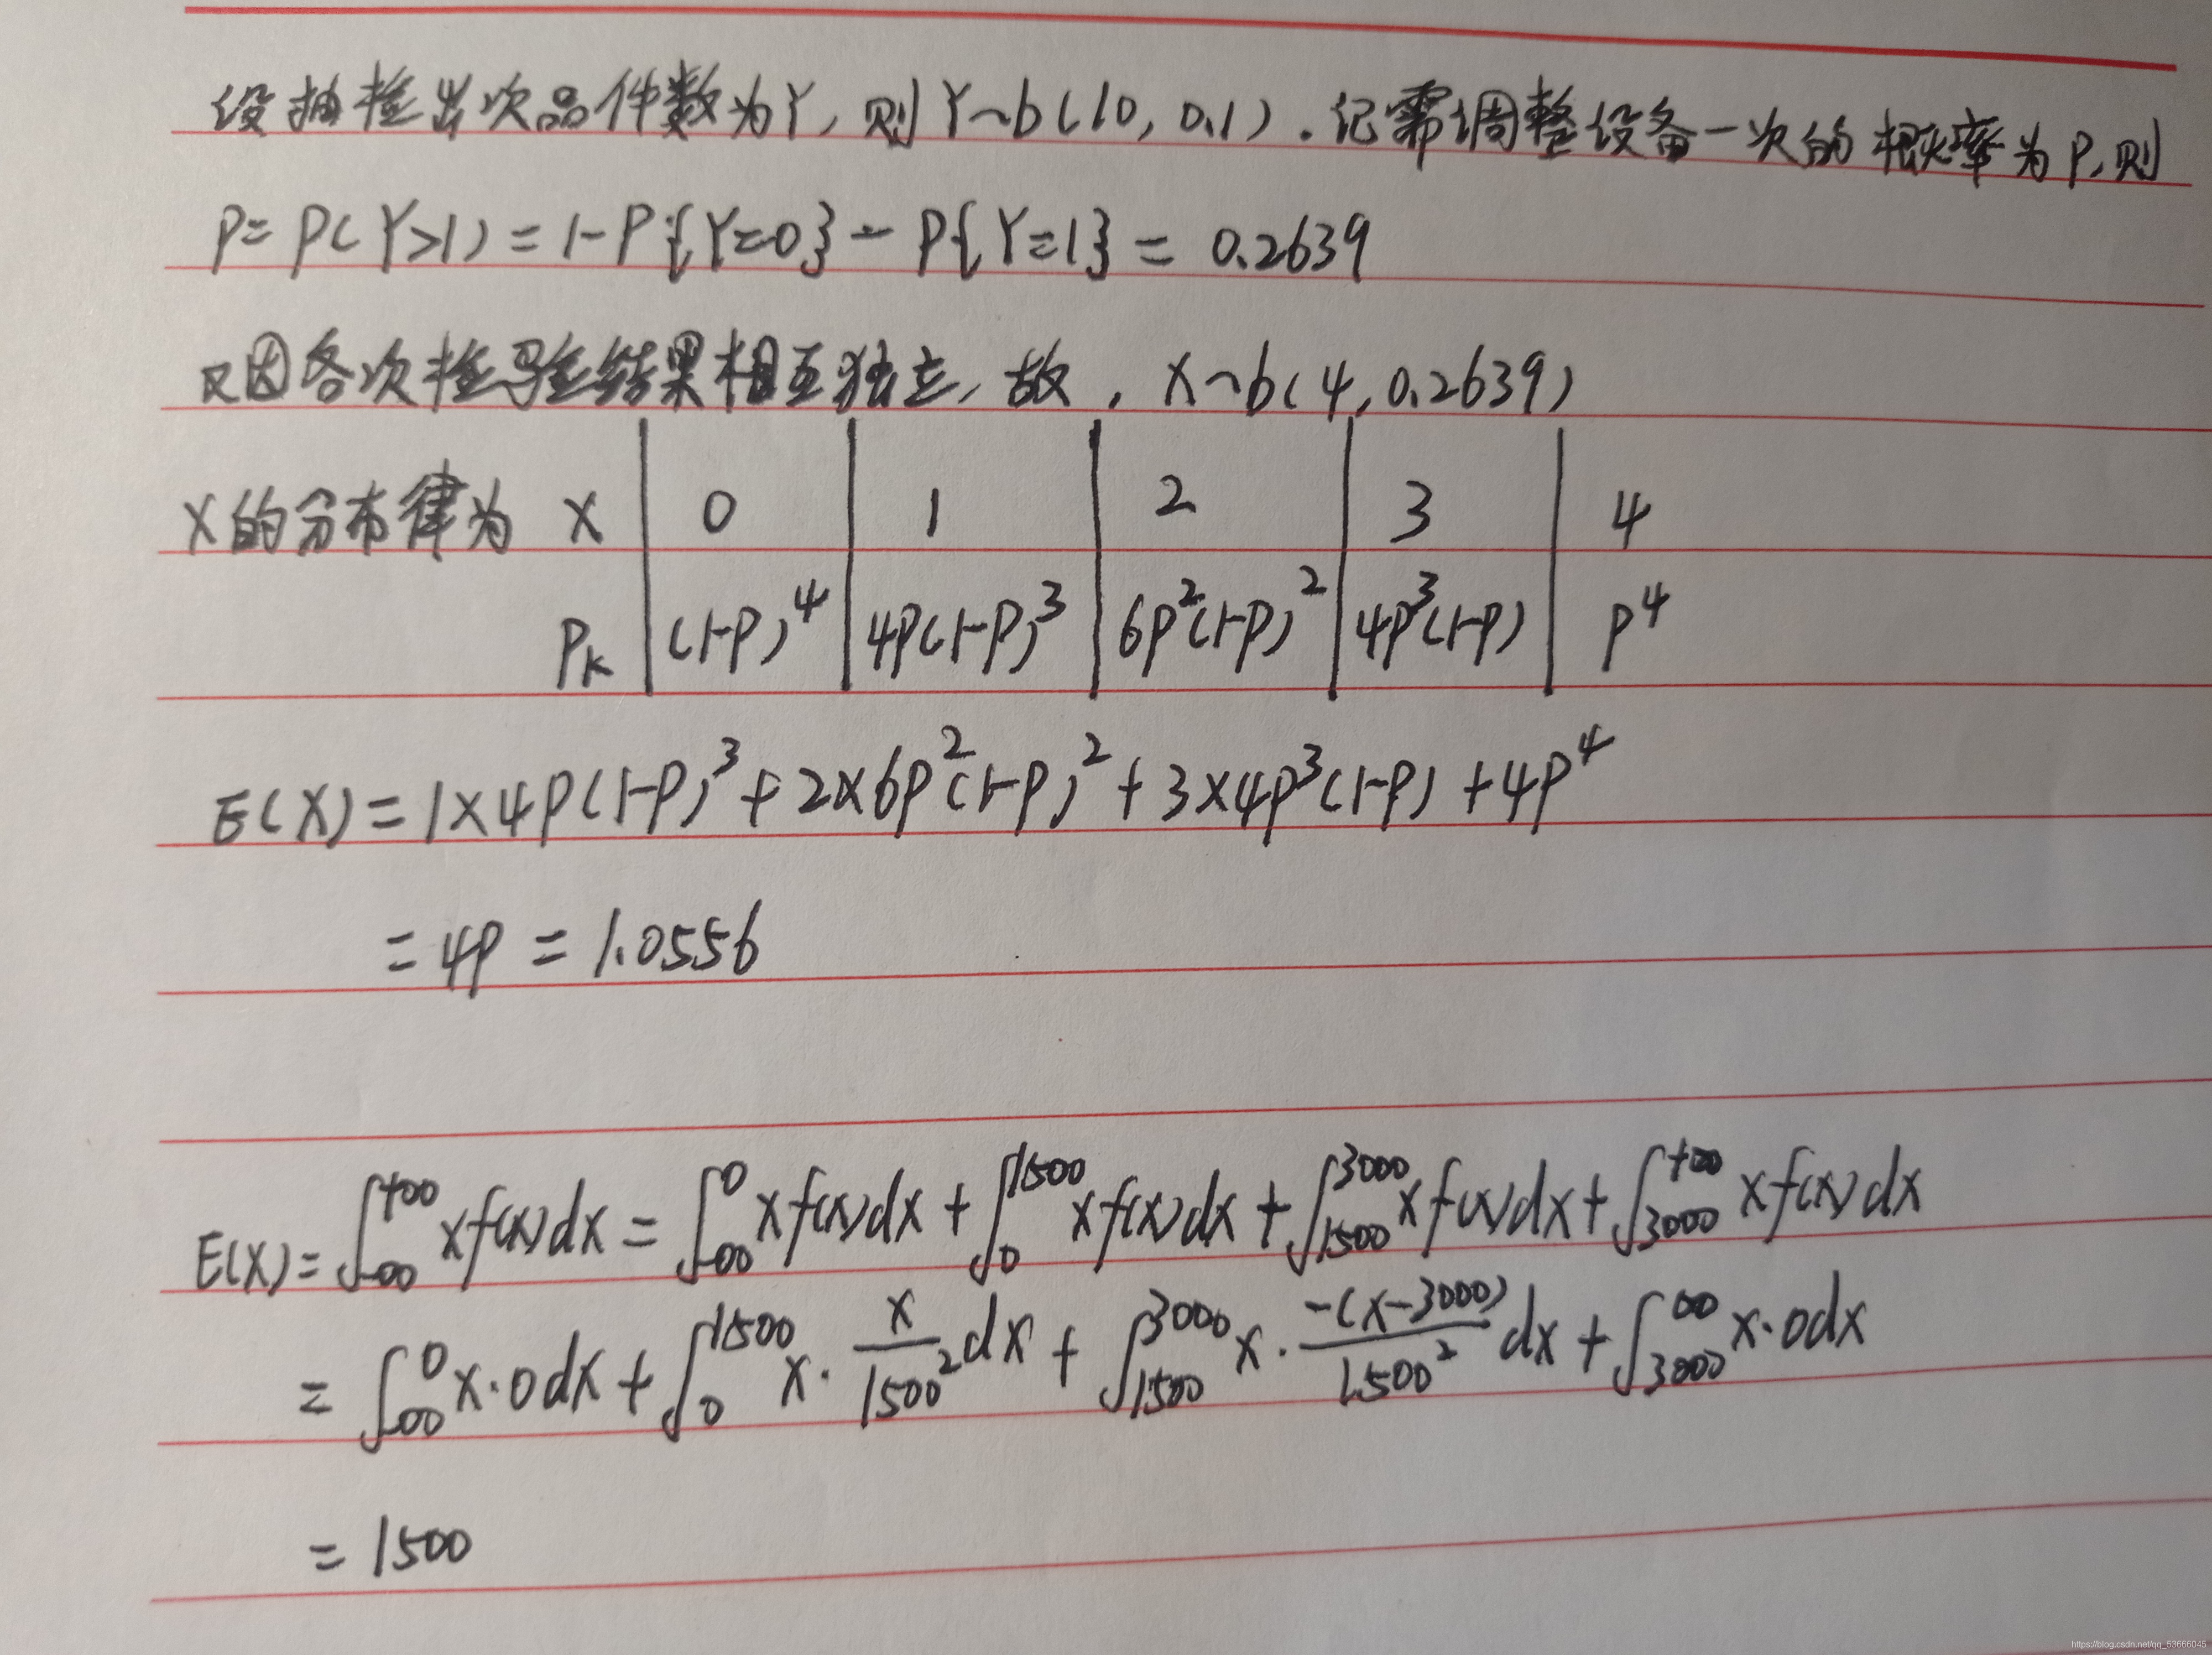 设抽检出次品件数为Y, 则Y~b(10, 0.1). 记需调整设备一次的概率为P, 则
P= P(Y>1) = 1-P{Y=0} - P{Y=1} = 0.2639
又因各次检验结果相互独立, 故, X~b(4, 0.2639)
X的分布律为 X | 0 | 1 | 2 | 3 | 4
Pk | (1-P)^4 | 4P(1-P)^3 | 6P^2(1-P)^2 | 4P^3(1-P) | P^4
E(X) = 1×4P(1-P)^3 + 2×6P^2(1-P)^2 + 3×4P^3(1-P) + 4P^4
= 4P = 1.0556
E(X) = ∫_{-∞}^{+∞} xf(x)dx = ∫_{-∞}^{0} xf(x)dx + ∫_{0}^{1500} xf(x)dx + ∫_{1500}^{3000} xf(x)dx + ∫_{3000}^{+∞} xf(x)dx
= ∫_{-∞}^{0} x·0dx + ∫_{0}^{1500} x·\frac{x}{1500^2}dx + ∫_{1500}^{3000} x·\frac{-(x-3000)}{1500^2}dx + ∫_{3000}^{∞} x·0dx
= 1500
https://blog.csdn.net/qq_53666045